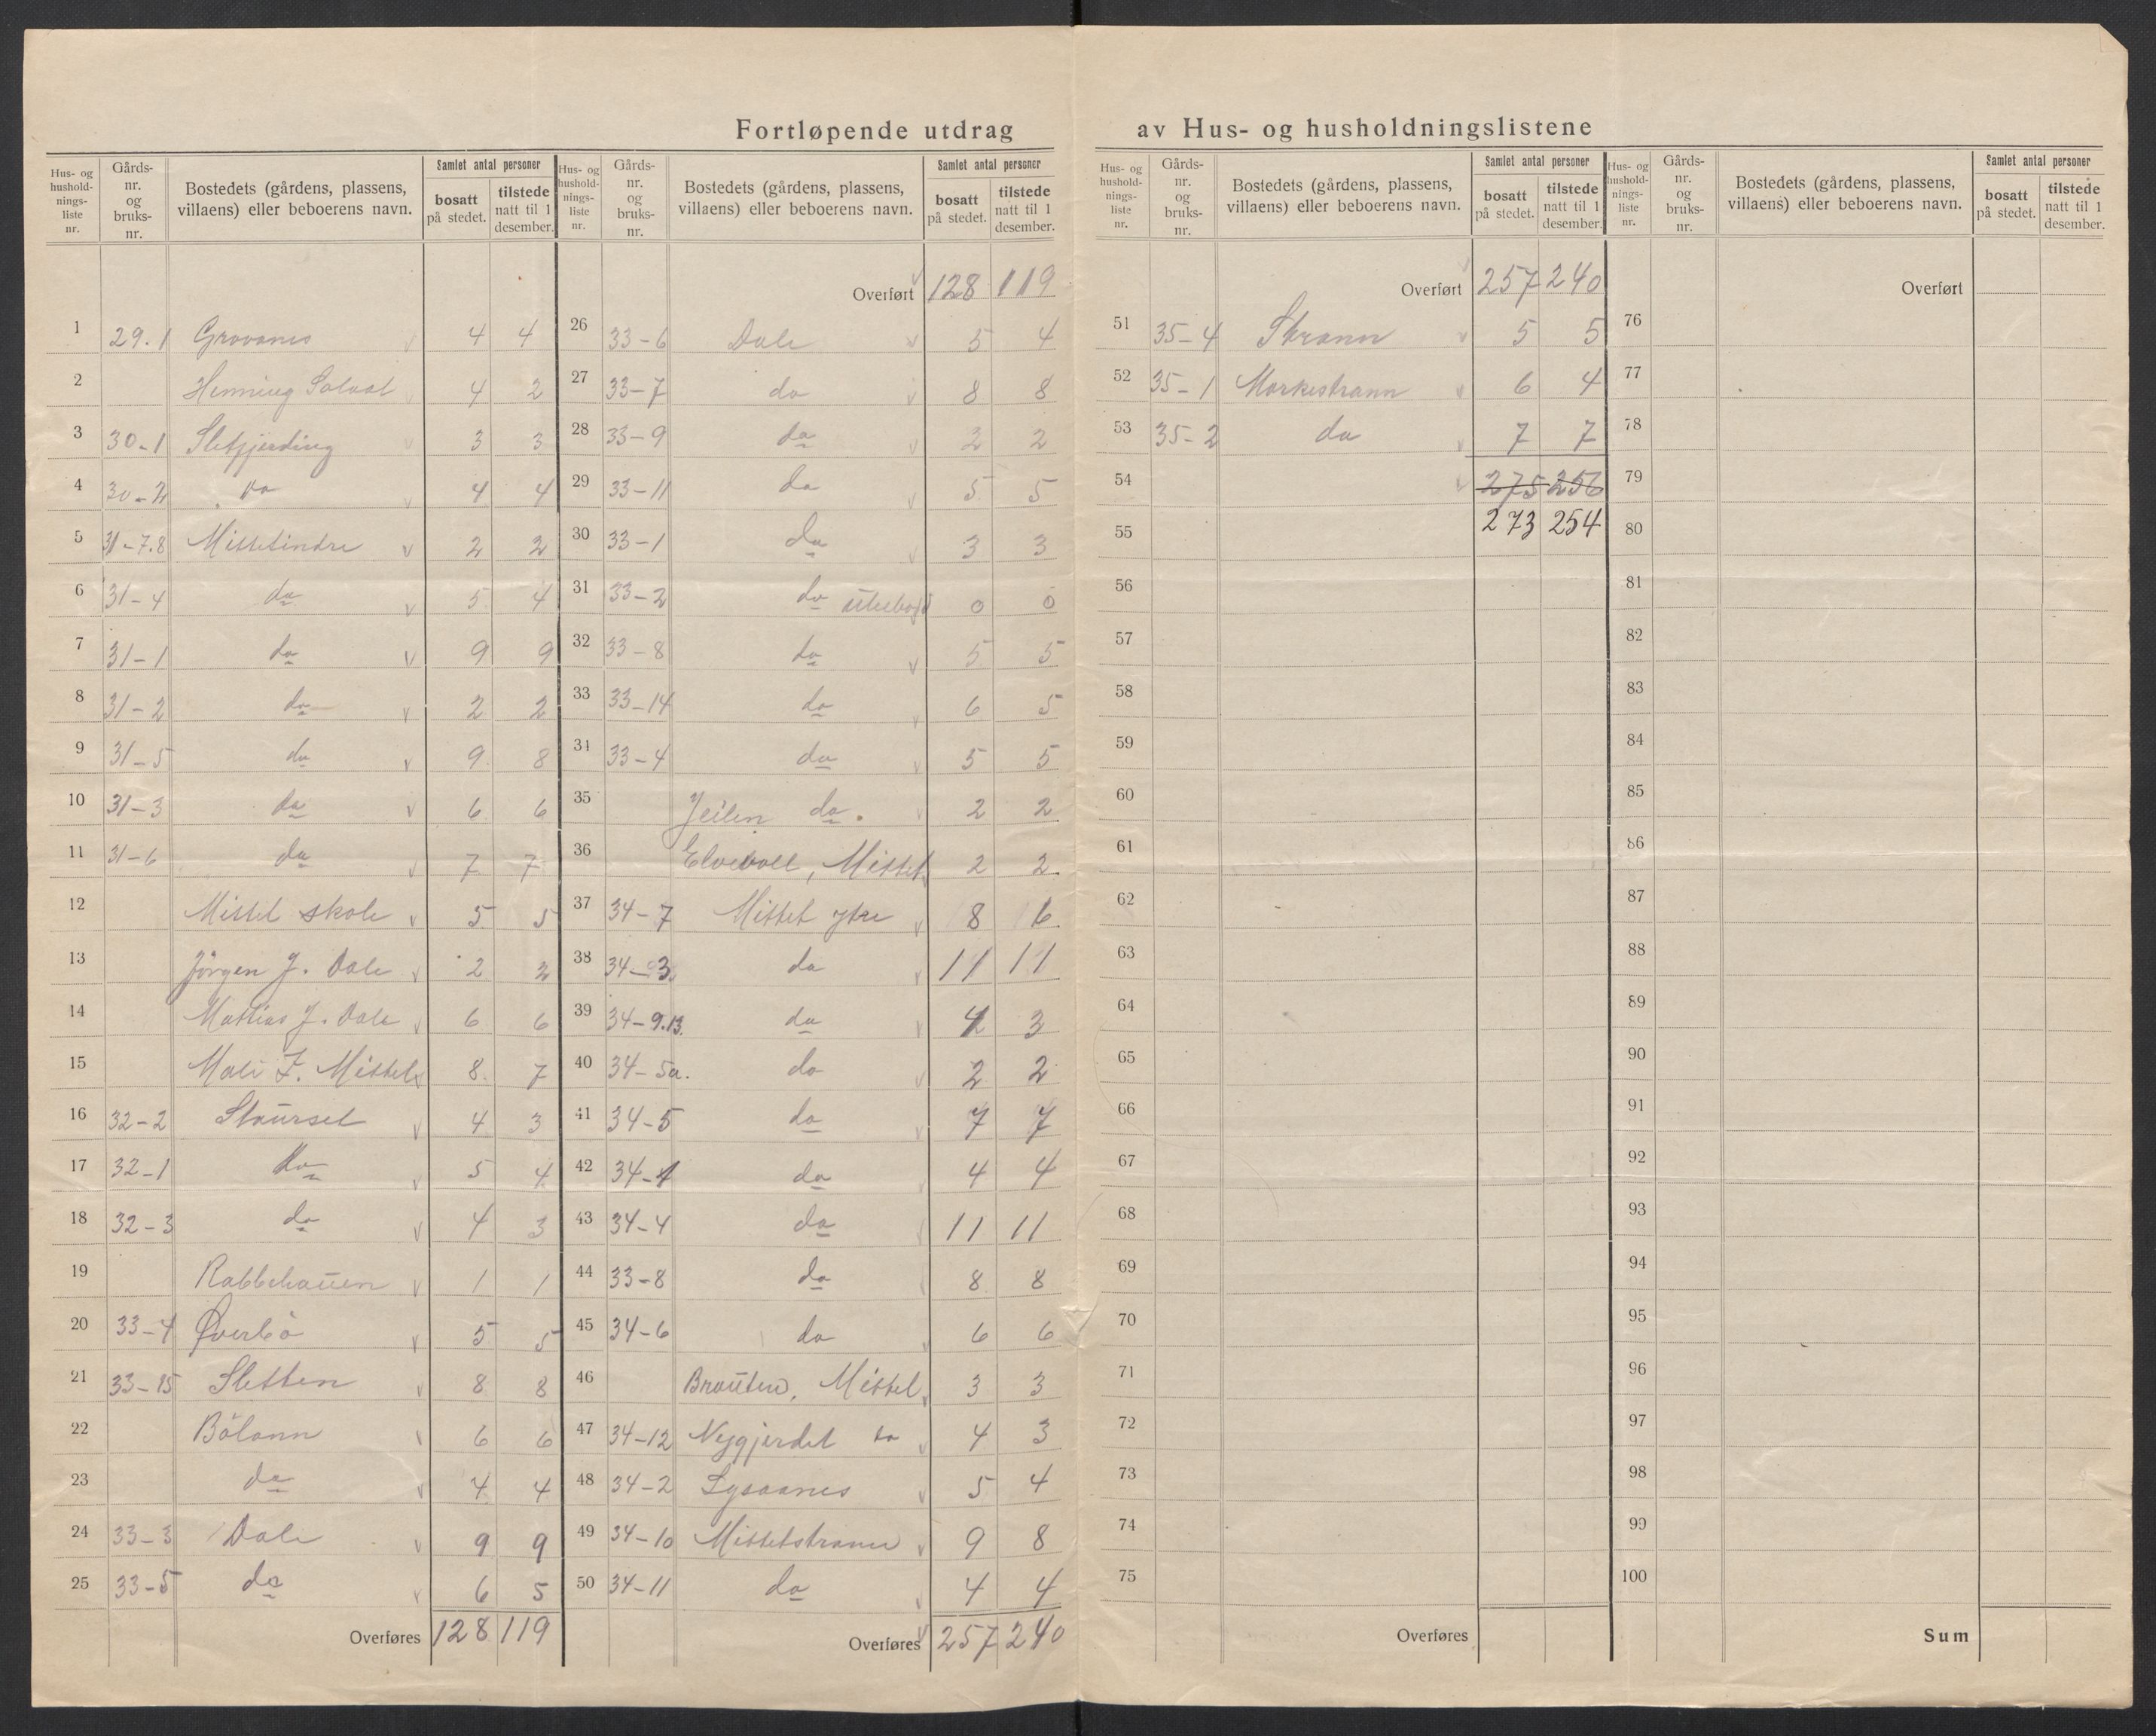 Fortløpende utdrag av Hus- og husholdningslistene
Hus- og hushold-nings-liste nr. Gårds-nr. og bruks-nr. Bostedets (gårdens, plassens, villaens) eller beboerens navn. Samlet antal personer bosatt på stedet. tilstede natt til 1 desember.
1 29.1 Grovanes 4 4
2 Henning Solvol 4 2
3 30-1 Sletfjerding 3 3
4 30-2 do 4 4
5 31-7.8 Mittetindre v 2 2
6 31-4 do v 5 4
7 31-1 do v 9 9
8 31-2 do v 2 2
9 31-5 do v 9 8
10 31-3 do v 6 6
11 31-6 do v 7 7
12 Mittet skole v 5 5
13 Jörgen J. Dale v 2 2
14 Mathias J. Dale v 6 6
15 Mali Z. Mittet v 8 7
16 32-2 Staurset v 4 3
17 32-1 do v 5 4
18 32-3 do v 4 3
19 Rabbehauen v 1 1
20 33-4 Øverbö v 5 5
21 33-15 Sletten v 8 8
22 Bölann v 6 6
23 do v 4 4
24 33-3 Dale v 9 9
25 33-5 do v 6 5
Overføres 128 119
Hus- og hushold-nings-liste nr. Gårds-nr. og bruks-nr. Bostedets (gårdens, plassens, villaens) eller beboerens navn. Samlet antal personer bosatt på stedet. tilstede natt til 1 desember.
Overført 128 119
26 33-6 Dale v 5 4
27 33-7 do v 8 8
28 33-9 do v 2 2
29 33-11 do v 5 5
30 33-1 do v 3 3
31 33-2 do 0 0
32 33-8 do v 5 5
33 33-14 do v 6 5
34 33-4 do v 5 5
35 Jeilen do. 2 2
36 Elvevoll, Mittet 2 2.
37 34-7 Mittet ytre v 8 6
38 34-3. do v 11 11
39 34-9.13. do v 4 3
40 34-5a. do v 2 2
41 34-5 do v 7 7
42 34-1 do 4 4
43 34-4 do 11 11
44 33-8 do 8 8
45 34-6 do 6 6
46 Brauten, Mittet 3 3
47 34-12 Nygjerdet do v 4 3
48 34-2 Lysaanes v 5 4
49 34-10 Mittetstrann v 9 8
50 34-11 do v 4 4
Overføres 257 240
Hus- og hushold-nings-liste nr. Gårds-nr. og bruks-nr. Bostedets (gårdens, plassens, villaens) eller beboerens navn. Samlet antal personer bosatt på stedet. tilstede natt til 1 desember.
Overført 257 240
51 35-4 Strann v 5 5
52 35-1 Morkestrann v 6 4
53 35-2 do v 7 7
54 275 256
55 273 254
56
57
58
59
60
61
62
63
64
65
66
67
68
69
70
71
72
73
74
75
Overføres
Hus- og hushold-nings-liste nr. Gårds-nr. og bruks-nr. Bostedets (gårdens, plassens, villaens) eller beboerens navn. Samlet antal personer bosatt på stedet. tilstede natt til 1 desember.
Overført
76
77
78
79
80
81
82
83
84
85
86
87
88
89
90
91
92
93
94
95
96
97
98
99
100
Sum